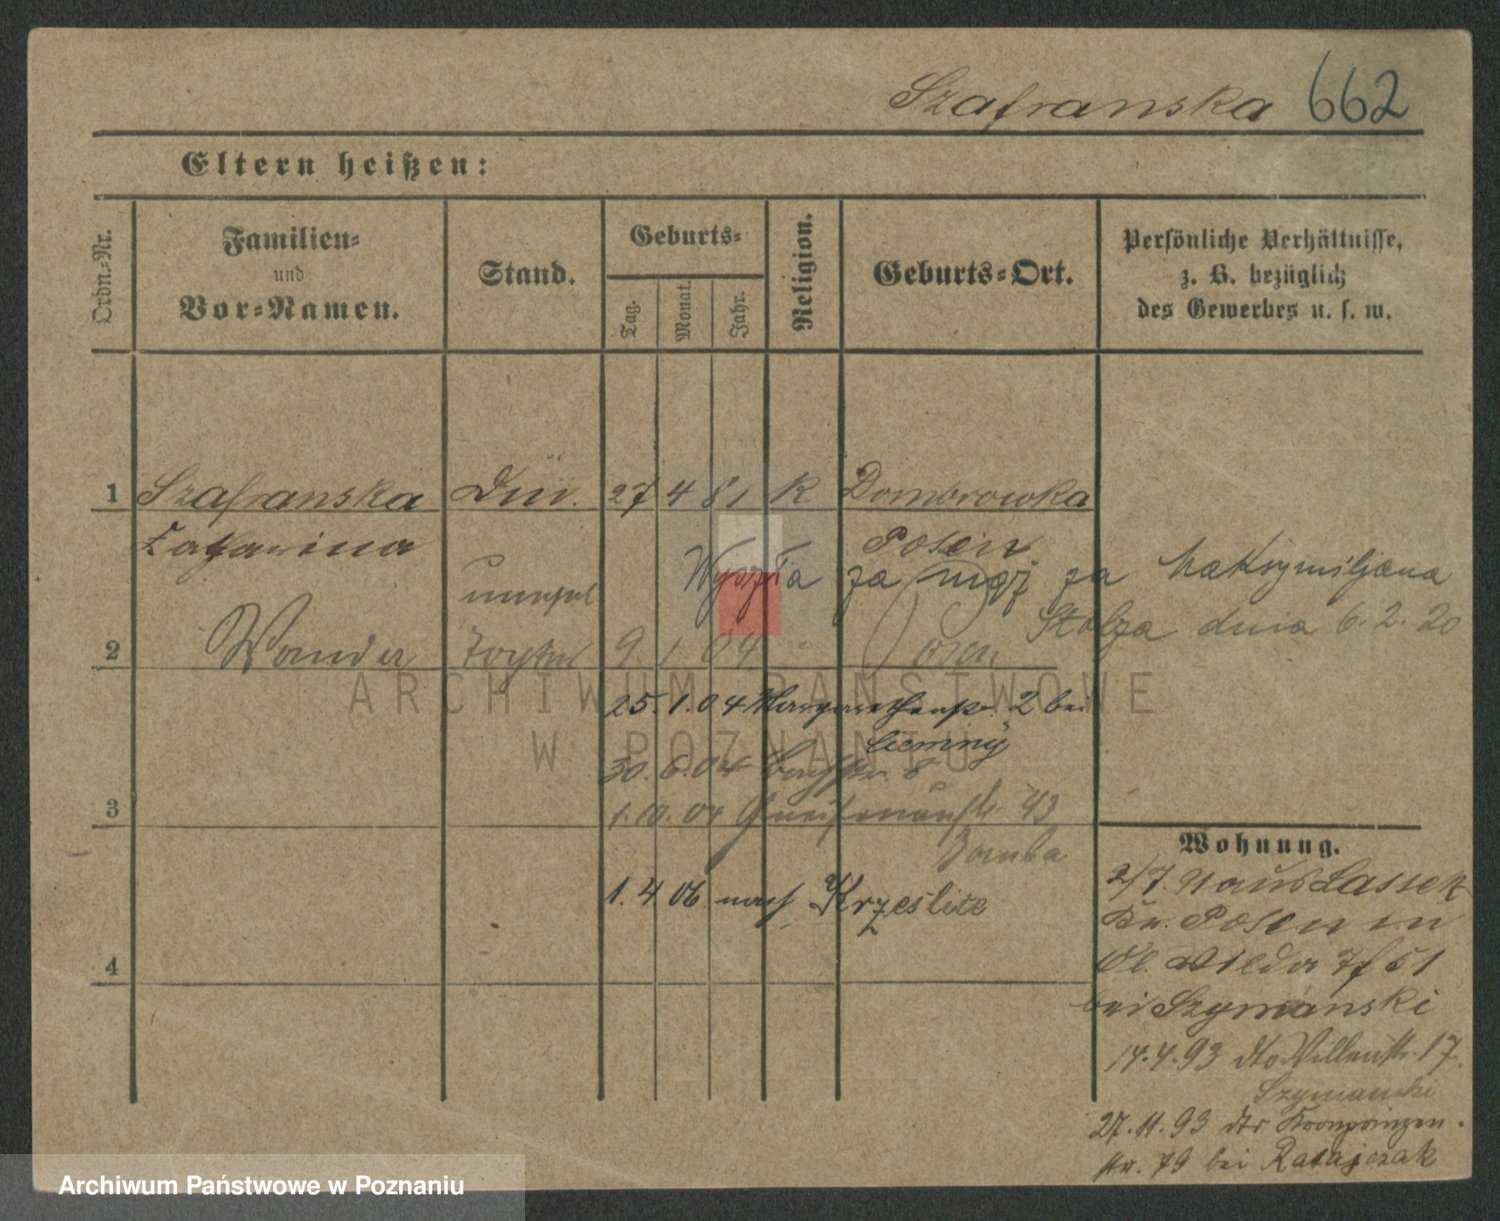 Szafranska 662
Eltern heißen:
Ordn.-Nr.
Familien-
und
Vor-Namen.
Stand.
Geburts-
Tag.
Monat.
Jahr.
Religion.
Geburts-Ort.
Persönliche Verhältnisse,
z. B. bezüglich
des Gewerbes u. s. w.
1 Szafranska 27 4 81 K Dombrowka
Catharina Posen
Wyszła za mąż za Maksymiljana
Stolza dnia 6.2.20
2 Wanda 9. 1 04 Posen
25. 1. 04 2 bei
Ciemny
30. 6. 04
3 1. 10. 04 Gneisenaustr. 43
1. 4 06 nach Krzeslice
4
Wohnung.
2/7. 91 aus Lassek
Kr. Posen in
Wilda 51
bei Szymanski
14.4.93 dto 17.
Szymanski
27.11.93 dto Kronprinzen-
str. 79 bei Ratajczak
ARCHIWUM PAŃSTWOWE
W POZNANIU
Archiwum Państwowe w Poznaniu